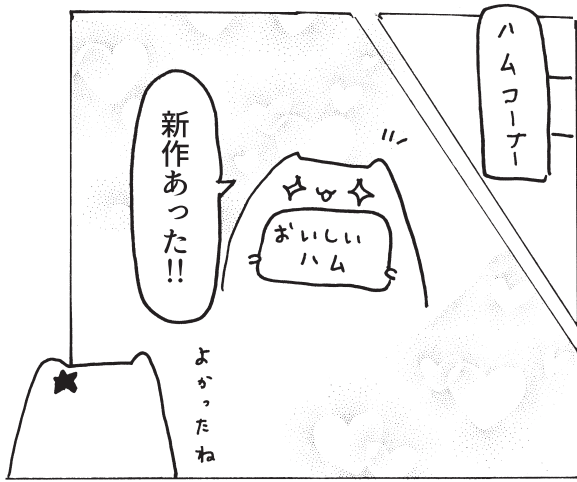 ハムコーナー
新作あった!!
おいしい
ハム
よかったね